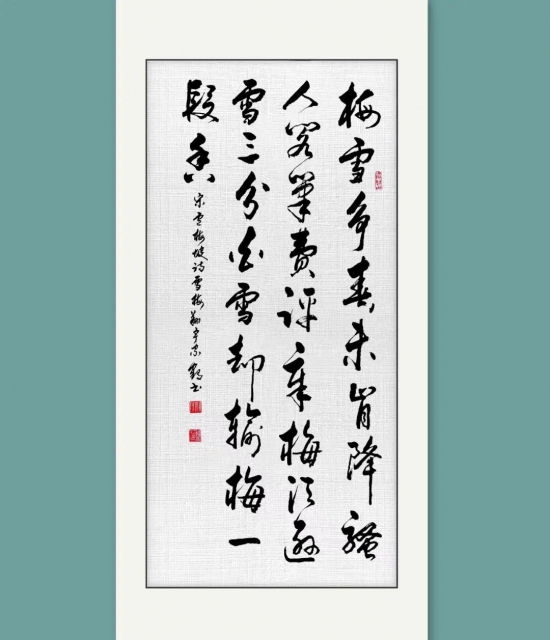 梅雪争春未肯降騷
人阁筆費评章梅须遜
雪三分白雪却輸梅一
段香
宋卢梅坡诗雪梅
书